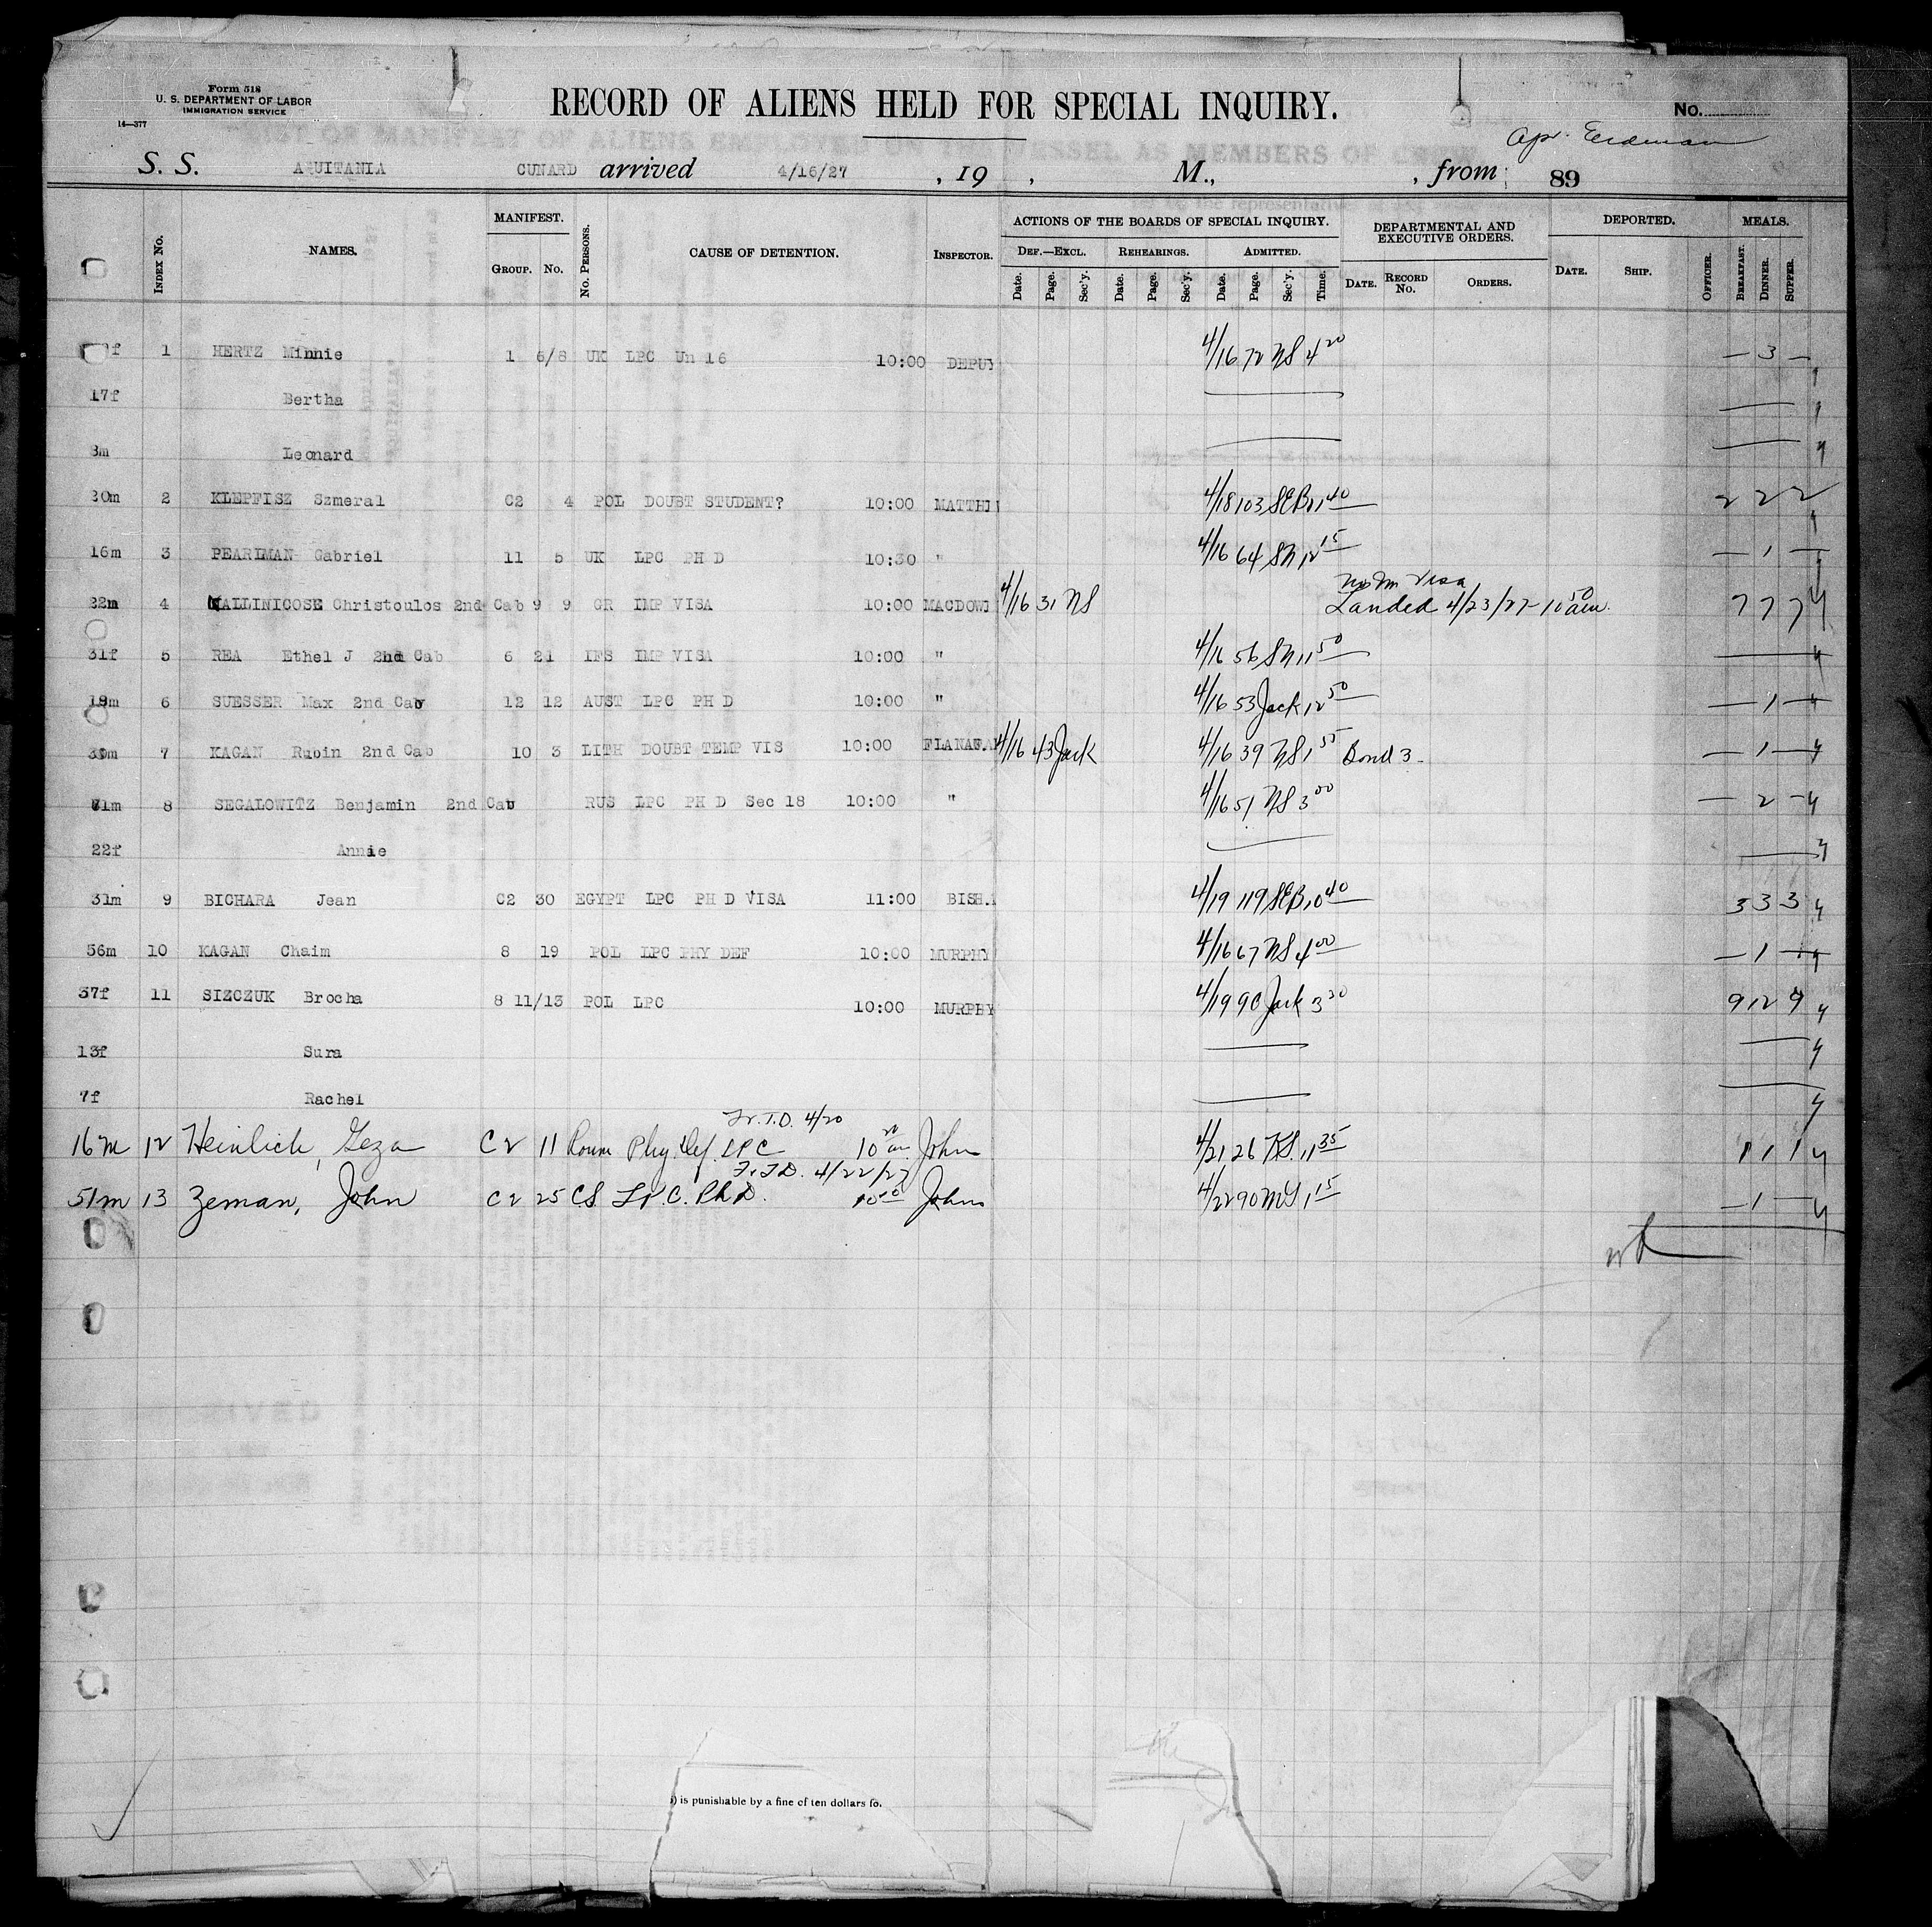 Form 518
U. S. DEPARTMENT OF LABOR
IMMIGRATION SERVICE
14—377
RECORD OF ALIENS HELD FOR SPECIAL INQUIRY.
No.
S. S. AQUITANIA CUNARD arrived 4/16/27 , 19 , M., , from 89
INDEX No. NAMES. MANIFEST. GROUP. No. No. PERSONS. CAUSE OF DETENTION. INSPECTOR. ACTIONS OF THE BOARDS OF SPECIAL INQUIRY. DEPARTMENTAL AND EXECUTIVE ORDERS. DEPORTED. MEALS.
DEF.—EXCL. REHEARINGS. ADMITTED.
Date. Page. Sec'y. Date. Page. Sec'y. Date. Page. Sec'y. Time. DATE. RECORD No. ORDERS. DATE. SHIP. OFFICER. BREAKFAST. DINNER. SUPPER.
1 HERTZ Minnie 1 6/8 UK LPC Un 16 10:00 DEPUY 4/16 72 NS 4 20 — 3 —
17f Bertha
8m Leonard
30m 2 KLEPFISZ Szmeral C2 4 POL DOUBT STUDENT? 10:00 MATTHI 4/18 103 SEB 11 40 2 2 2
16m 3 PEARLMAN Gabriel 11 5 UK LPC PH D 10:30 " 4/16 64 SN 12 15 — 1 —
22m 4 KALLINICOSE Christoulos 2nd Cab 9 9 GR IMP VISA 10:00 MACDOW 4/16 31 NS Visa Landed 4/23/27 - 10 50 am. 7 7 7
31f 5 REA Ethel J 2nd Cab 6 21 IFS IMP VISA 10:00 " 4/16 56 SN 11 50
19m 6 SUESSER Max 2nd Cab 12 12 AUST LPC PH D 10:00 " 4/16 53 Jack 12 50 — 1 —
39m 7 KAGAN Rubin 2nd Cab 10 3 LITH DOUBT TEMP VIS 10:00 FLANAGA 4/16 43 Jack 4/16 39 NS 1 55 Bond 3 — 1 —
8 SEGALOWITZ Benjamin 2nd Cab RUS LPC PH D Sec 18 10:00 " 4/16 51 NS 3 00 — 2 —
22f Annie
31m 9 BICHARA Jean C2 30 EGYPT LPC PH D VISA 11:00 BISHA 4/19 119 SEB 10 40 3 3 3
56m 10 KAGAN Chaim 8 19 POL LPC PHY DEF 10:00 MURPHY 4/16 67 NS 4 00 — 1 —
37f 11 SIZCZUK Brocha 8 11/13 POL LPC 10:00 MURPHY 4/19 90 Jack 3 30 9 12 9
13f Sura
7f Rachel
Fr. T.D. 4/20
16m 12 Heinlich, Geza C2 11 Roum Phy. Def. LPC 10 20 am John 4/21 26 KS. 11 35 1 1 1
Fr. T.D. 4/22/27
51m 13 Zeman, John C2 25 CS L.P.C. Ph.D. John 4/22 90 MS 1 15 — 1 —
) is punishable by a fine of ten dollars fo.